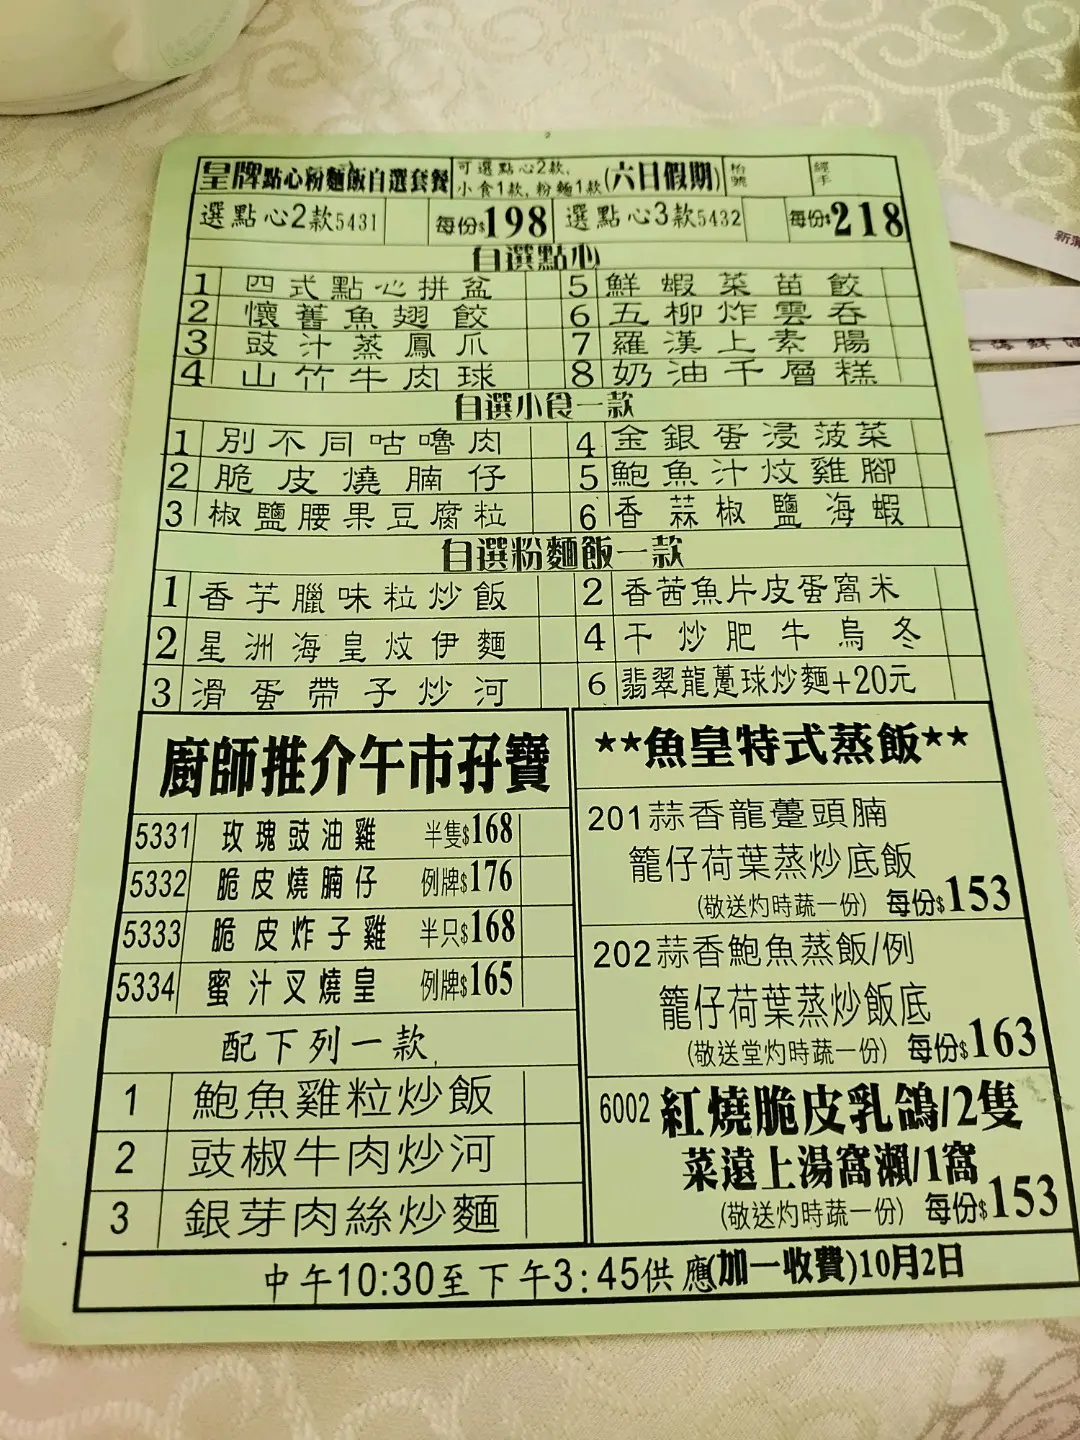 皇牌點心粉麵飯自選套餐 可選點心2款, 小食1款, 粉麵1款 (六日假期) 枱號 經手
選點心2款5431 每份$198 選點心3款5432 每份$218
自選點心
1 四式點心拼盆 5 鮮蝦菜苗餃
2 懷舊魚翅餃 6 五柳炸雲吞
3 豉汁蒸鳳爪 7 羅漢上素腸
4 山竹牛肉球 8 奶油千層糕
自選小食一款
1 別不同咕嚕肉 4 金銀蛋浸菠菜
2 脆皮燒腩仔 5 鮑魚汁炆雞腳
3 椒鹽腰果豆腐粒 6 香蒜椒鹽海蝦
自選粉麵飯一款
1 香芋臘味粒炒飯 2 香茜魚片皮蛋窩米
2 星洲海皇炆伊麵 4 干炒肥牛烏冬
3 滑蛋帶子炒河 6 翡翠龍躉球炒麵+20元
廚師推介午市孖寶
5331 玫瑰豉油雞 半隻$168
5332 脆皮燒腩仔 例牌$176
5333 脆皮炸子雞 半只$168
5334 蜜汁叉燒皇 例牌$165
配下列一款
1 鮑魚雞粒炒飯
2 豉椒牛肉炒河
3 銀芽肉絲炒麵
**魚皇特式蒸飯**
201蒜香龍躉頭腩
籠仔荷葉蒸炒底飯
(敬送灼時蔬一份) 每份$153
202蒜香鮑魚蒸飯/例
籠仔荷葉蒸炒飯底
(敬送堂灼時蔬一份) 每份$163
6002 紅燒脆皮乳鴿/2隻
菜遠上湯窩瀨/1窩
(敬送灼時蔬一份) 每份$153
中午10:30至下午3:45供應(加一收費)10月2日